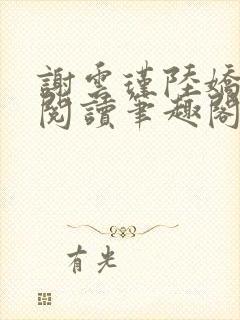 謝雲瑾陸嬌
閱讀筆趣閣
有光